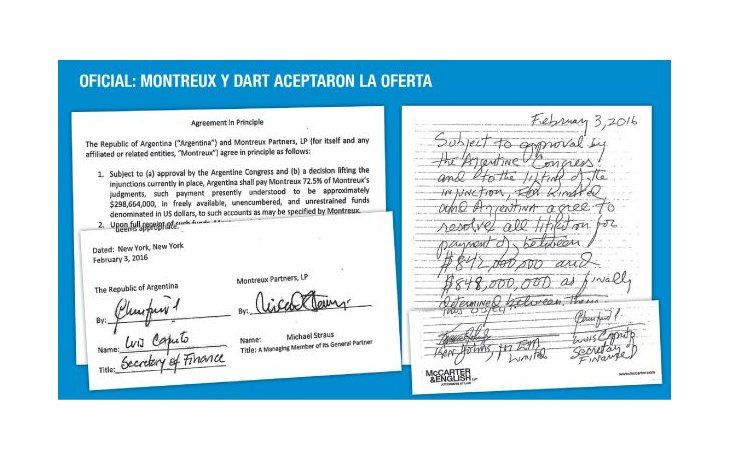 OFICIAL: MONTREUX Y DART ACEPTARON LA OFERTA
Agreement in Principle
The Republic of Argentina ("Argentina") and Montreux Partners, LP (for itself and any
affiliated or related entities, "Montreux") agree in principle as follows:
1. Subject to (a) approval by the Argentine Congress and (b) a decision lifting the
injunctions currently in place, Argentina shall pay Montreux 72.5% of Montreux's
judgments, such payment presently understood to be approximately
$298,664,000, in freely available, unencumbered, and unrestrained funds
denominated in US dollars, to such accounts as may be specified by Montreux.
2. Upon full receipt of such funds,
Dated: New York, New York
February 3, 2016
The Republic of Argentina
By:
Name: Luis Caputo
Title: Secretary of Finance
Montreux Partners, LP
By:
Name: Michael Straus
Title: A Managing Member of Its General Partner
February 3, 2016
Subject to approval by
the Argentine Congress
and to the lifting of the
injunction,
and Argentina agree to
resolve all litigation for
payment of between
$842,000,000 and
$848,000,000 as finally
determined between them
Ken Limited
Luis Caputo
Secretary of
Finance
McCARTER
&ENGLISH LLP
ATTORNEYS AT LAW
www.mccarter.com